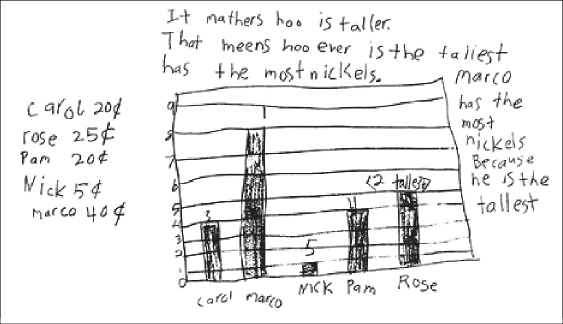 It mathers hoo is taller.
That meens hoo ever is the tallest
has the most nickels.
Marco
has the
most
nickels
Because
he is the
tallest
Carol 20¢
rose 25¢
Pam 20¢
Nick 5¢
Marco 40¢
9
8
7
6
5
4
3
2
1
0
3
1
5
4
<2 tallest>
Carol Marco Nick Pam Rose